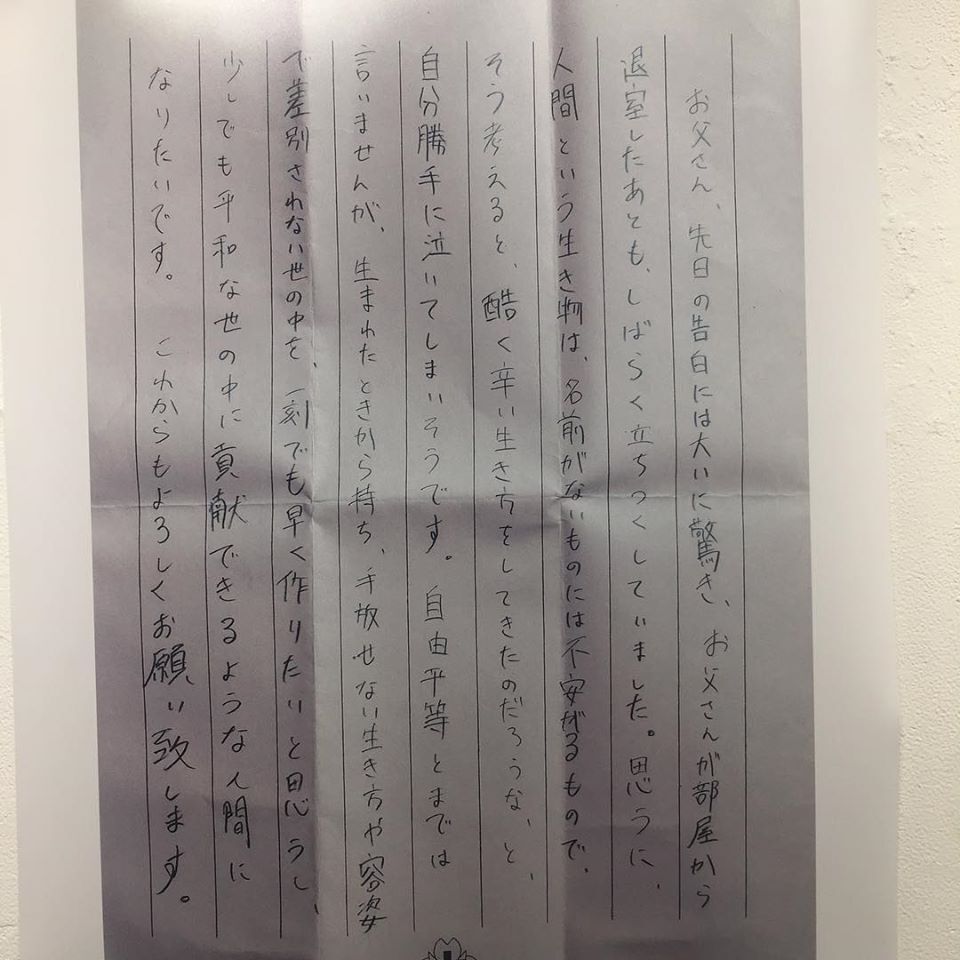 お父さん、先日の告白には大いに驚き、お父さんが部屋から
退室したあとも、しばらく立ちつくしていました。思うに、
人間という生き物は、名前がないものには不安がるもので、
そう考えると、酷く辛い生き方をしてきたのだろうな、と、
自分勝手に泣いてしまいそうです。自由平等とまでは
言いませんが、生まれたときから持ち、手放せない生き方や容姿
で差別されない世の中を、一刻でも早く作りたいと思うし、
少しでも平和な世の中に貢献できるような人間に
なりたいです。これからもよろしくお願い致します。